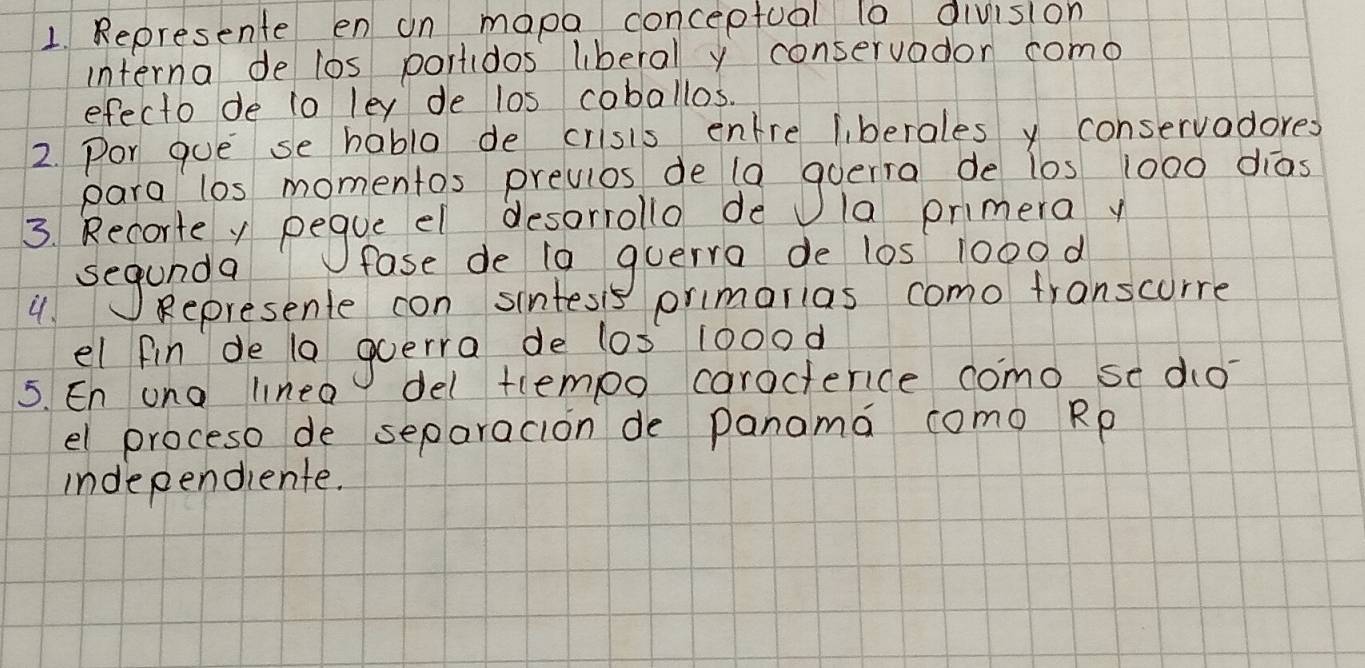 1. Represente en un mapa conceptual la división
interna de los partidos liberal y conservador como
efecto de la ley de los caballos.
2. Por qué se habla de crisis entre liberales y conservadores
para los momentos previos de la guerra de los 1000 días
3. Recorte y pegue el desarrollo de la primera y
segunda fase de la guerra de los 1000d
4. Represente con sintesis primarias como transcurre
el fin de la guerra de los 1000d
5. En una linea del tiempo caracterice cómo se dió
el proceso de separación de Panamá como Rp
independiente.